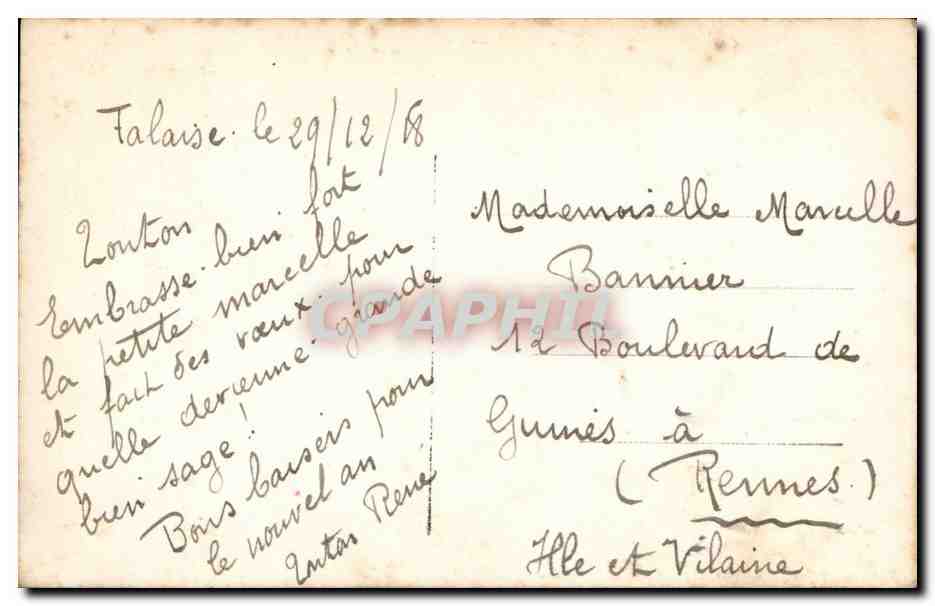 Falaise. le 29/12/18
Tonton
Embrasse bien fort
la petite marcelle
et fait des vœux pour
quelle devienne grande
bien sage!
Bons baisers pour
le nouvel an
René
Mademoiselle Marcelle
Bannier
12 Boulevard de
Guinés à
(Rennes.)
Ille et Vilaine
CPAPHIL